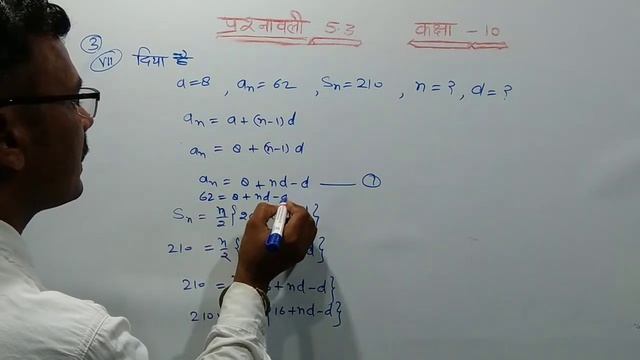 प्रश्नावली 5.3 कक्षा - 10
③ (VII) दिया है
a=8 , aₙ=62 , Sₙ=210 , n=? , d=?
aₙ = a + (n-1) d
aₙ = 8 + (n-1) d
aₙ = 8 + nd - d —— ①
62 = 8 + nd -
Sₙ = n/2 { 2 }
210 = n/2 { d}
210 = + nd - d}
210 {16 + nd - d}